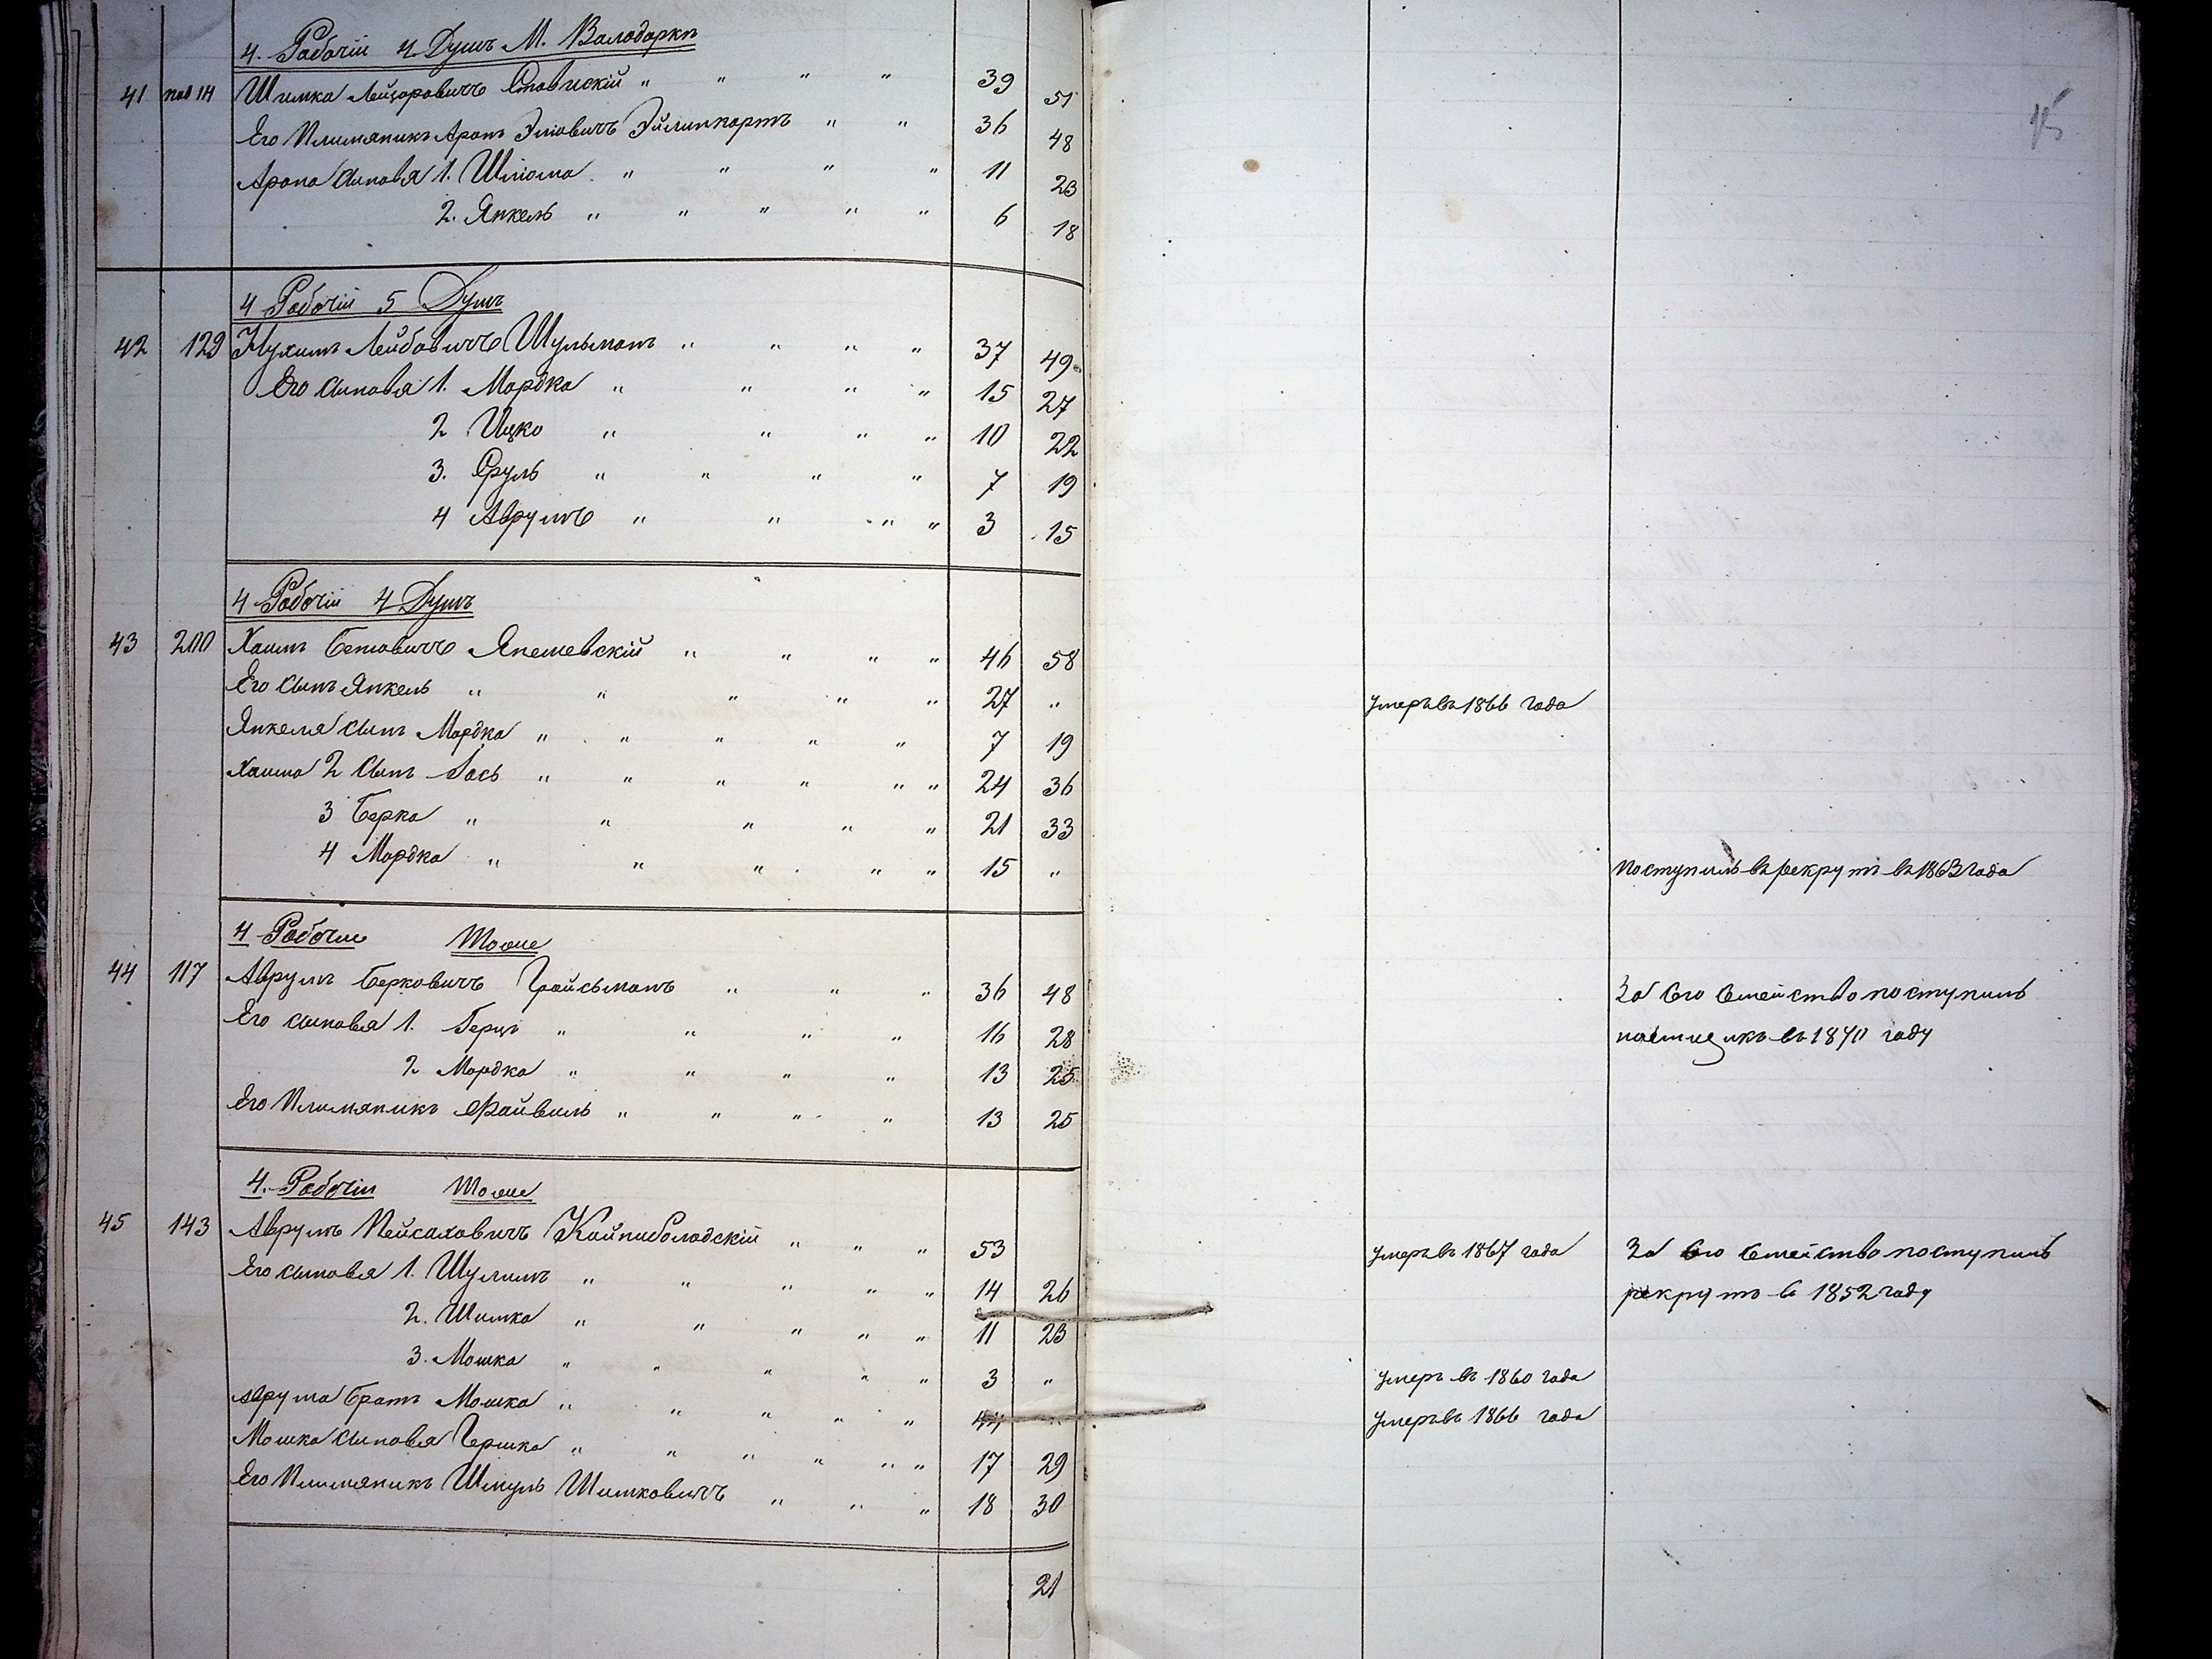 4. Рабочiи 4 Душъ М. Валодарки
41 Шимка Лейзоровичъ Ставискiй " " " " 39 51
Его Плимяникъ Аронъ Элiовичъ " " 36 48
Арона сыновя 1. Шлiома " " " " 11 23
2. Янкель " " " " " 6 18
15
4 Рабочiи 5 Душъ
42 129 Нухимъ Лейбовичъ Шульманъ " " " " 37 49
Его сыновя 1. Мордка " " " " 15 27
2 Ицко " " " " 10 22
3. Сруль " " " " 7 19
4 Аврумъ " " " " 3 15
4 Рабочiи 4 Душъ
43 200 Хаимъ Беніовичъ Янешевскiй " " " " 46 58
Его сынъ Янкель " " " " " 27 " умеръ въ 1866 года
Янкеля сынъ Мордка " " " " " 7 19
Хаима 2 сынъ Іось " " " " " " 24 36
3 Берка " " " " " 21 33
4 Мордка " " " " " 15 " поступилъ въ рекрутъ въ 1863 года
4 Рабочiи Тоже
44 117 Аврумъ Берковичъ Гройсьманъ " " " 36 48 За его семейство поступилъ
Его сыновя 1. Герцъ " " " " 16 28 наемщикъ въ 1870 году
2 Мордка " " " " 13 25
Его Плимяникъ Файвиль " " " " 13 25
4. Рабочiи Тоже
45 143 Аврумъ Пейсаховичъ " " " 53 умеръ въ 1867 года За его семейство поступилъ
Его сыновя 1. Шулимъ " " " " " 14 26 рекрутъ въ 1852 году
2. Шимка " " " " " 11 23
3. Мошка " " " " " 3 " умеръ въ 1860 года
Аврума братъ Мошка " " " " " 44 " умеръ въ 1866 года
Мошка сыновя Гершка " " " " " " 17 29
Его Плимяникъ Шмуль Шимковичъ " " " 18 30
21